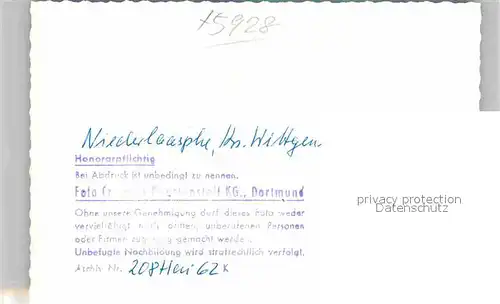 x5928
Niederlaasphe, Kr. Wittgen
Honorarpflichtig
Bei Abdruck ist unbedingt zu nennen.
Foto KG., Dortmund
Ohne unsere Genehmigung darf dieses Foto weder
vervielfältigt noch dritten, unberufenen Personen
oder Firmen zugängig gemacht werden.
Unbefugte Nachbildung wird strafrechtlich verfolgt.
Archiv Nr. 208 62 K
privacy protection
Datenschutz